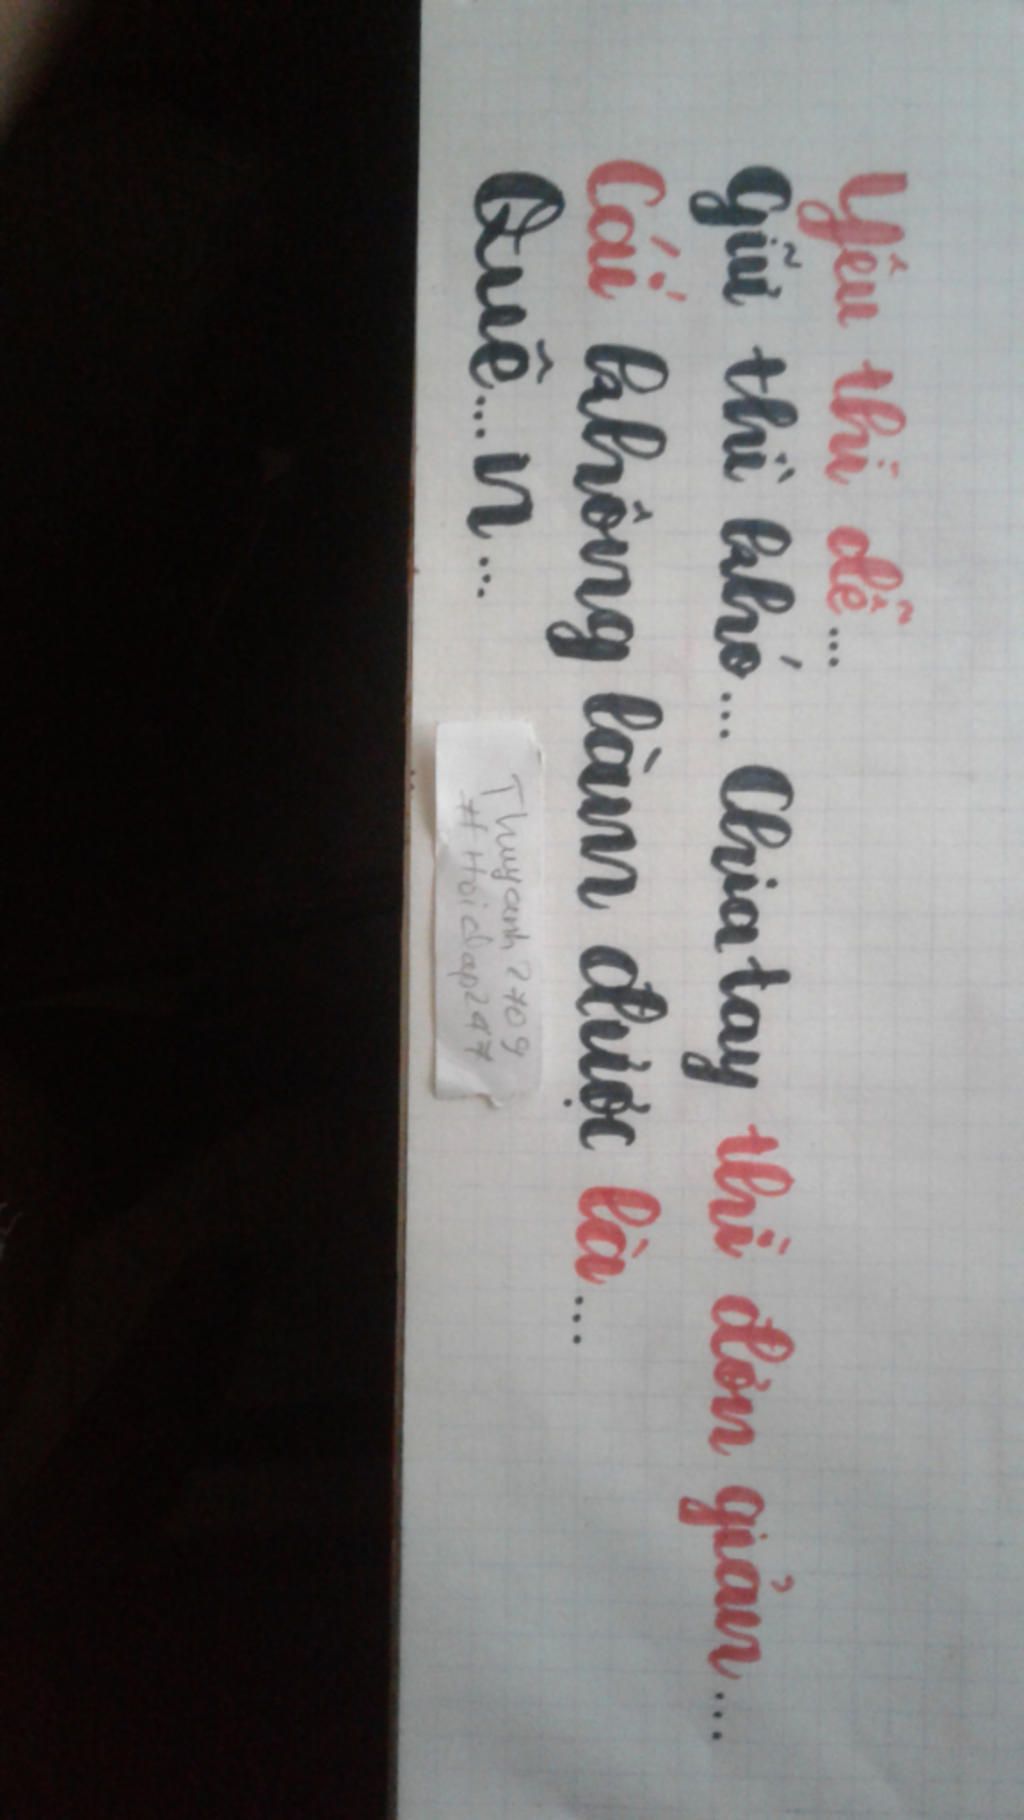 Yêu thì dễ...
Giữ thì khó... Chia tay thì đơn giản....
Cái không làm được là....
Quê....n...
Thuyanh2709
#Hoidap247